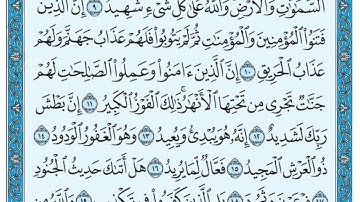 السَّمَٰوَٰتِ وَالْأَرْضِ وَاللَّهُ عَلَىٰ كُلِّ شَيْءٍ شَهِيدٌ ٩ إِنَّ الَّذِينَ
فَتَنُوا الْمُؤْمِنِينَ وَالْمُؤْمِنَاتِ ثُمَّ لَمْ يَتُوبُوا فَلَهُمْ عَذَابُ جَهَنَّمَ وَلَهُمْ
عَذَابُ الْحَرِيقِ ١٠ إِنَّ الَّذِينَ ءَامَنُوا وَعَمِلُوا الصَّالِحَاتِ لَهُمْ
جَنَّاتٌ تَجْرِي مِن تَحْتِهَا الْأَنْهَٰرُ ذَٰلِكَ الْفَوْزُ الْكَبِيرُ ١١ إِنَّ بَطْشَ
رَبِّكَ لَشَدِيدٌ ١٢ إِنَّهُ هُوَ يُبْدِئُ وَيُعِيدُ ١٣ وَهُوَ الْغَفُورُ الْوَدُودُ ١٤
ذُو الْعَرْشِ الْمَجِيدُ ١٥ فَعَّالٌ لِّمَا يُرِيدُ ١٦ هَلْ أَتَىٰكَ حَدِيثُ الْجُنُودِ